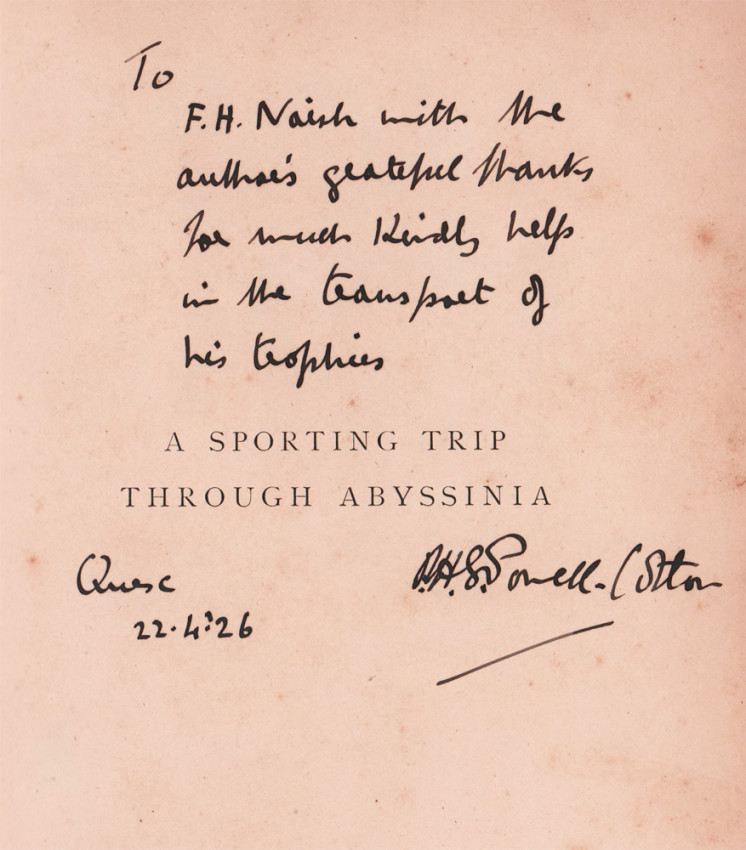 To
F.H. Naish with the
author's grateful thanks
for much kindly help
in the transport of
his trophies
A SPORTING TRIP
THROUGH ABYSSINIA
Quex
P.H.G. Powell-Cotton
22.4.26